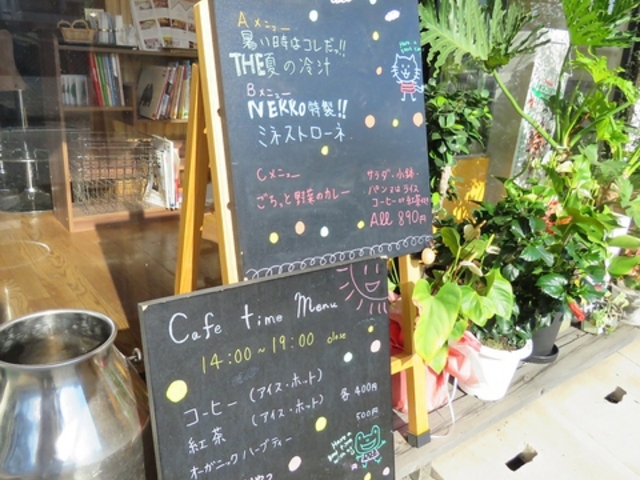 Aメニュー
暑い時はコレだっ!!
THE夏の冷汁
Bメニュー
NEKKO特製!!
ミネストローネ
Cメニュー
ごちっと野菜のカレー
サラダ・小鉢
パンまたはライス
コーヒー
All 890円
Cafe time Menu
14:00~19:00 close
コーヒー (アイス・ホット) 各400円
紅茶 (アイス・ホット)
オーガニックハーブティー 500円